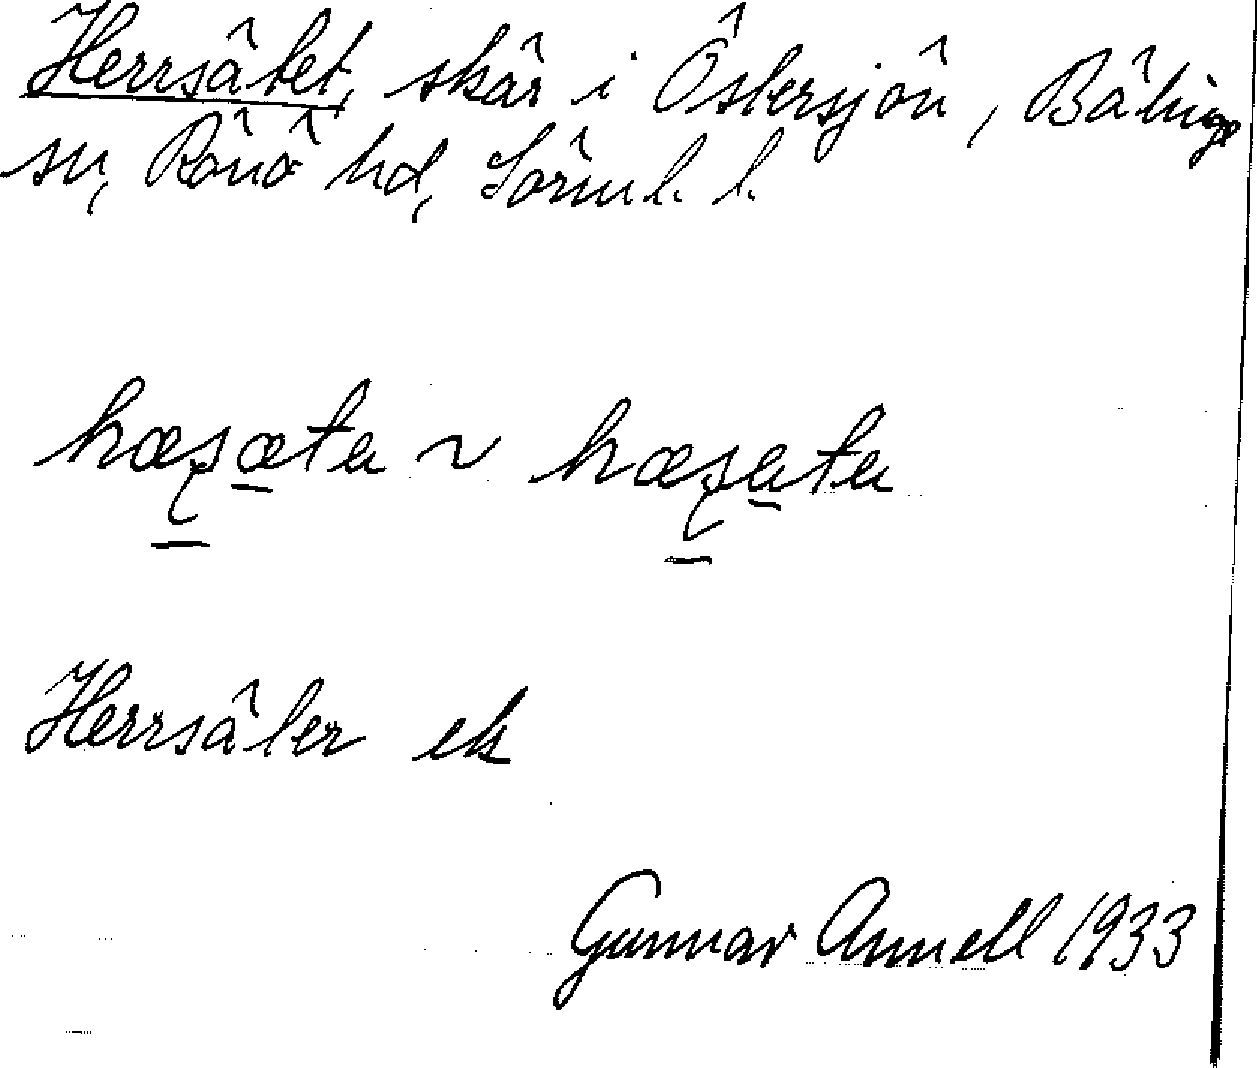 Herrsätet, skär i Östersjön, Bälinge
sn, Rönö hd, Sörml. l.
hæsæta ~ hæsata
Herrsäter ek
Gunnar Annell 1933